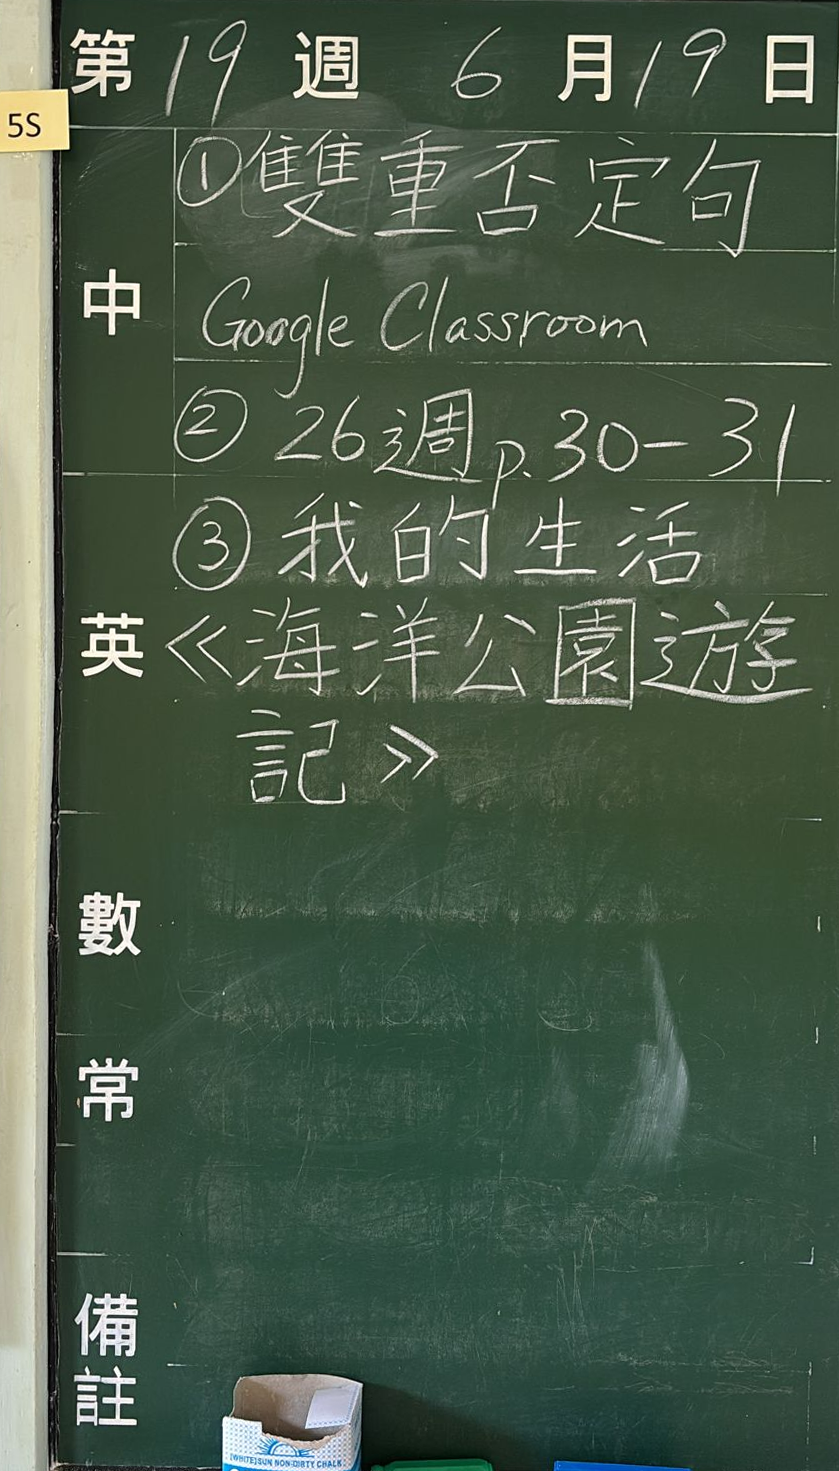 第19週 6月19日
5S
中
①雙重否定句
Google Classroom
② 26週 p.30-31
英
③ 我的生活
《海洋公園遊
記》
數
常
備
註
[WHITE]SUN NON-DIRTY CHALK